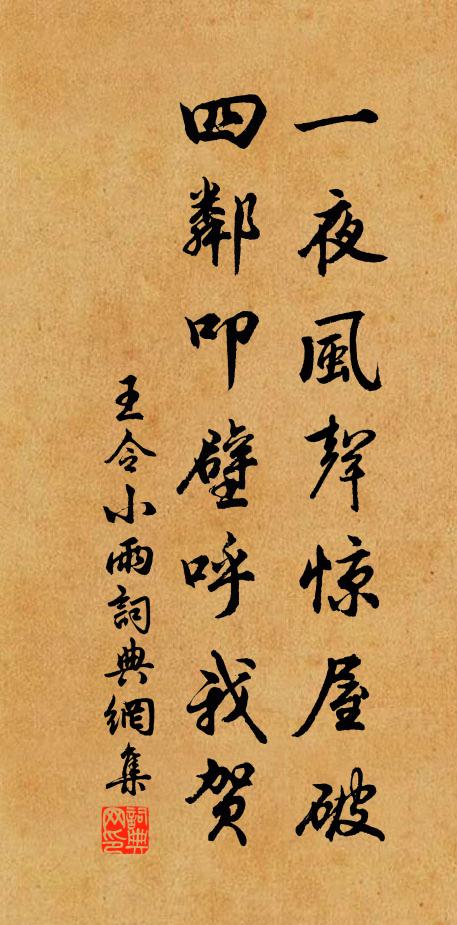 一夜風聲惊屋破
四鄰叩壁呼我贺
王令小雨詞典網集
詞典網印